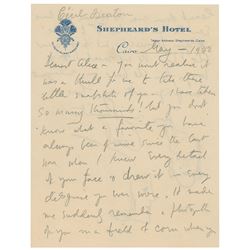 Cecil Beaton
SHEPHEARD'S HOTEL
Cairo May - 1942
Dearest Alice - You can't realise it
was a thrill for me to take those three
little snapshots of you - I have taken
so many thousands! but you don't
know what a favourite you have
always been of mine since the last
war when I knew every detail
of your face & drew it in every
disguise you wore. It made
me suddenly remember a photograph
of you in a field of corn when you